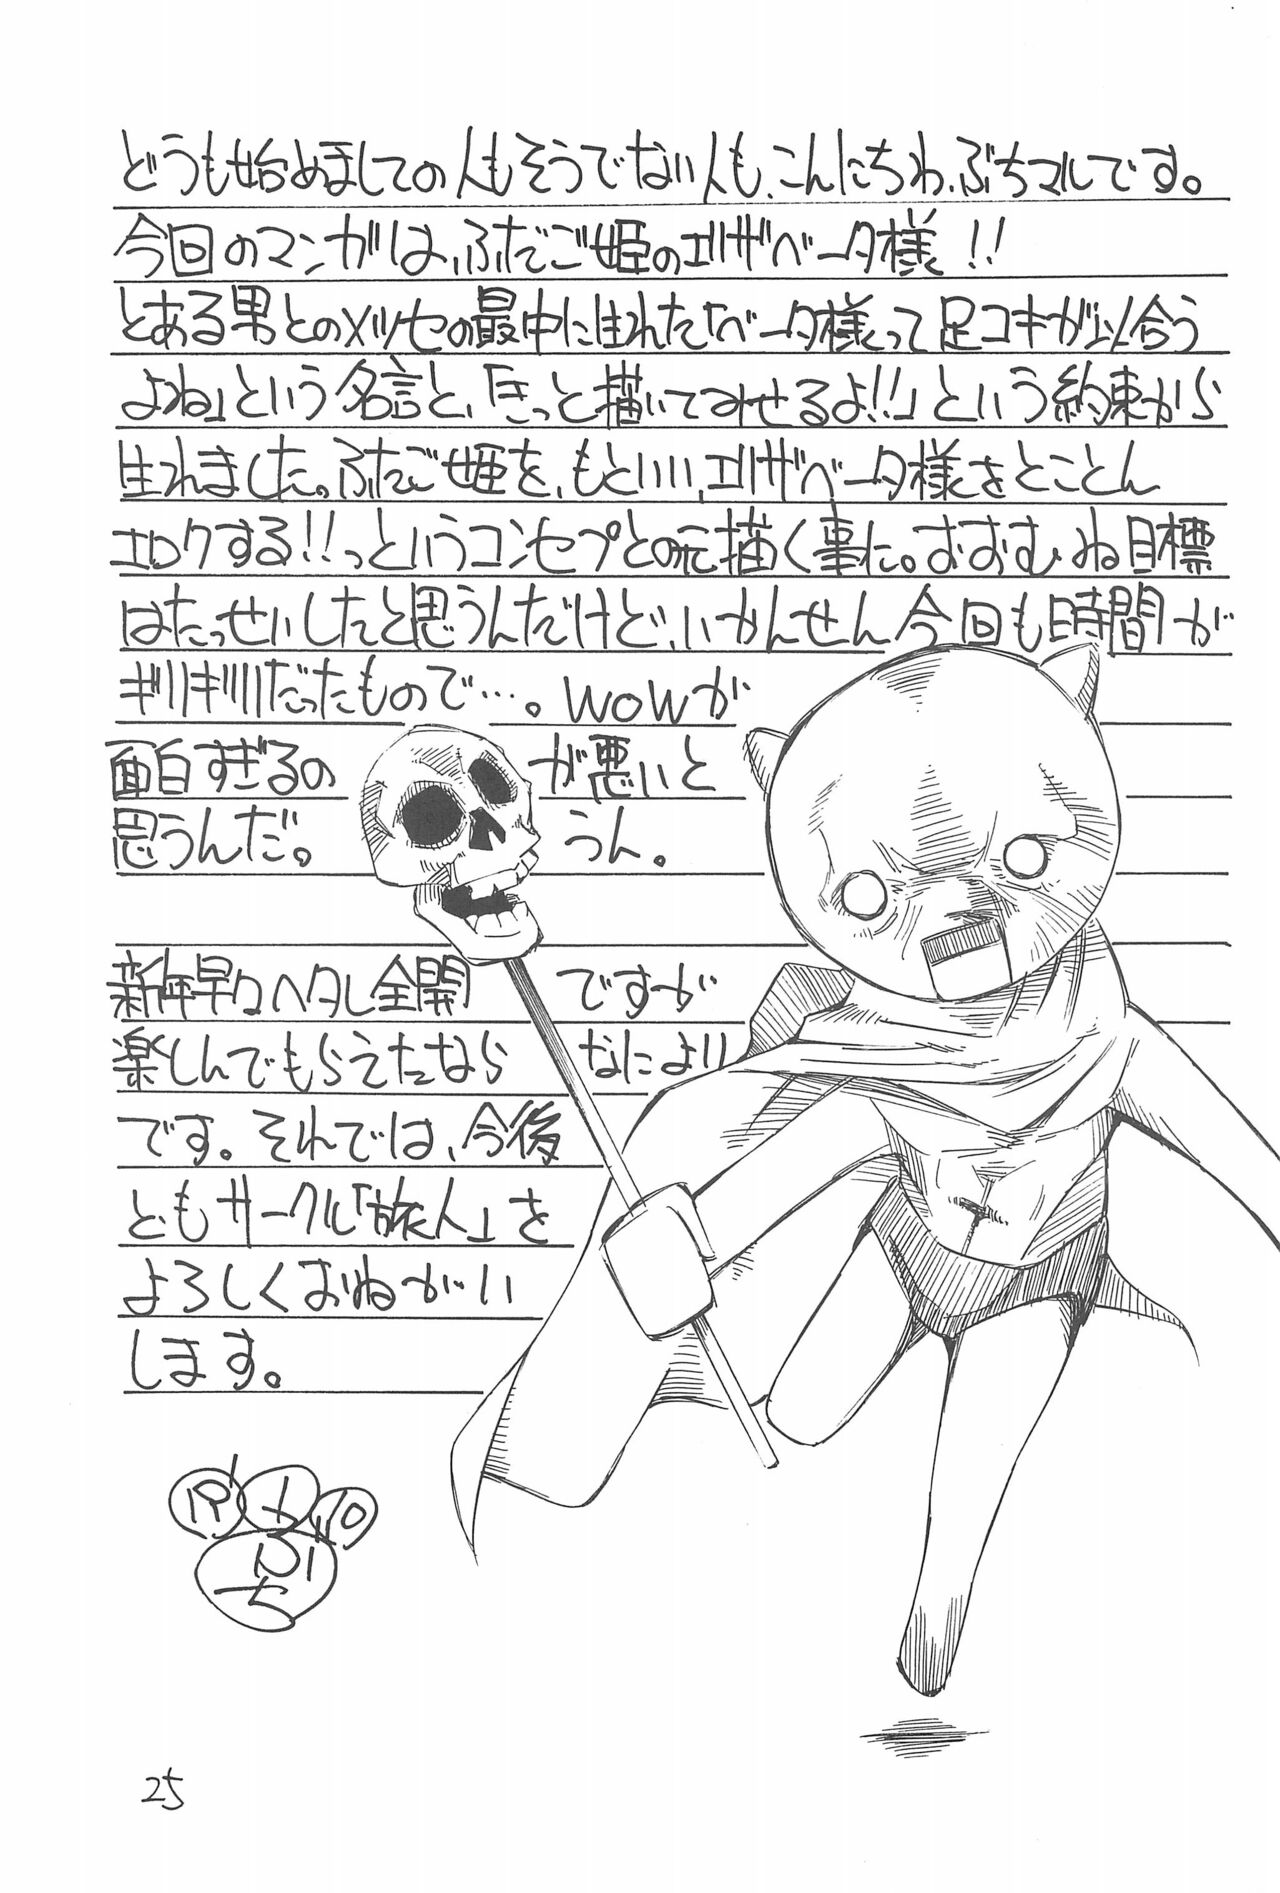 どうも始めましての人もそうでない人も、こんにちわ、ぶちマルです。
今回のマンガは、ふたご姫のエリザベータ様!!
とある男とのメッセの最中に生れた「ベータ様って足コキが似合う
よね」という名言と、「きっと描いてみせるよ!!」という約束から
生れました。ふたご姫を、もといい、エリザベータ様をとことん
エロクする!!っというコンセプとの元描く事に。おおむね目標
はたっせいしたと思うんだけど、いかんせん今回も時間が
ギリギリだったもので…。WOWが
面白すぎるのが悪いと
思うんだ。うん。
新年早々ヘタレ全開ですが
楽しんでもらえたなら なにより
です。それでは、今後
ともサークル「旅人」を
よろしくおねがい
します。
ぶ
ち
25